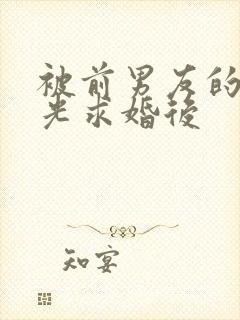 被前男友的
光求婚後
知宴